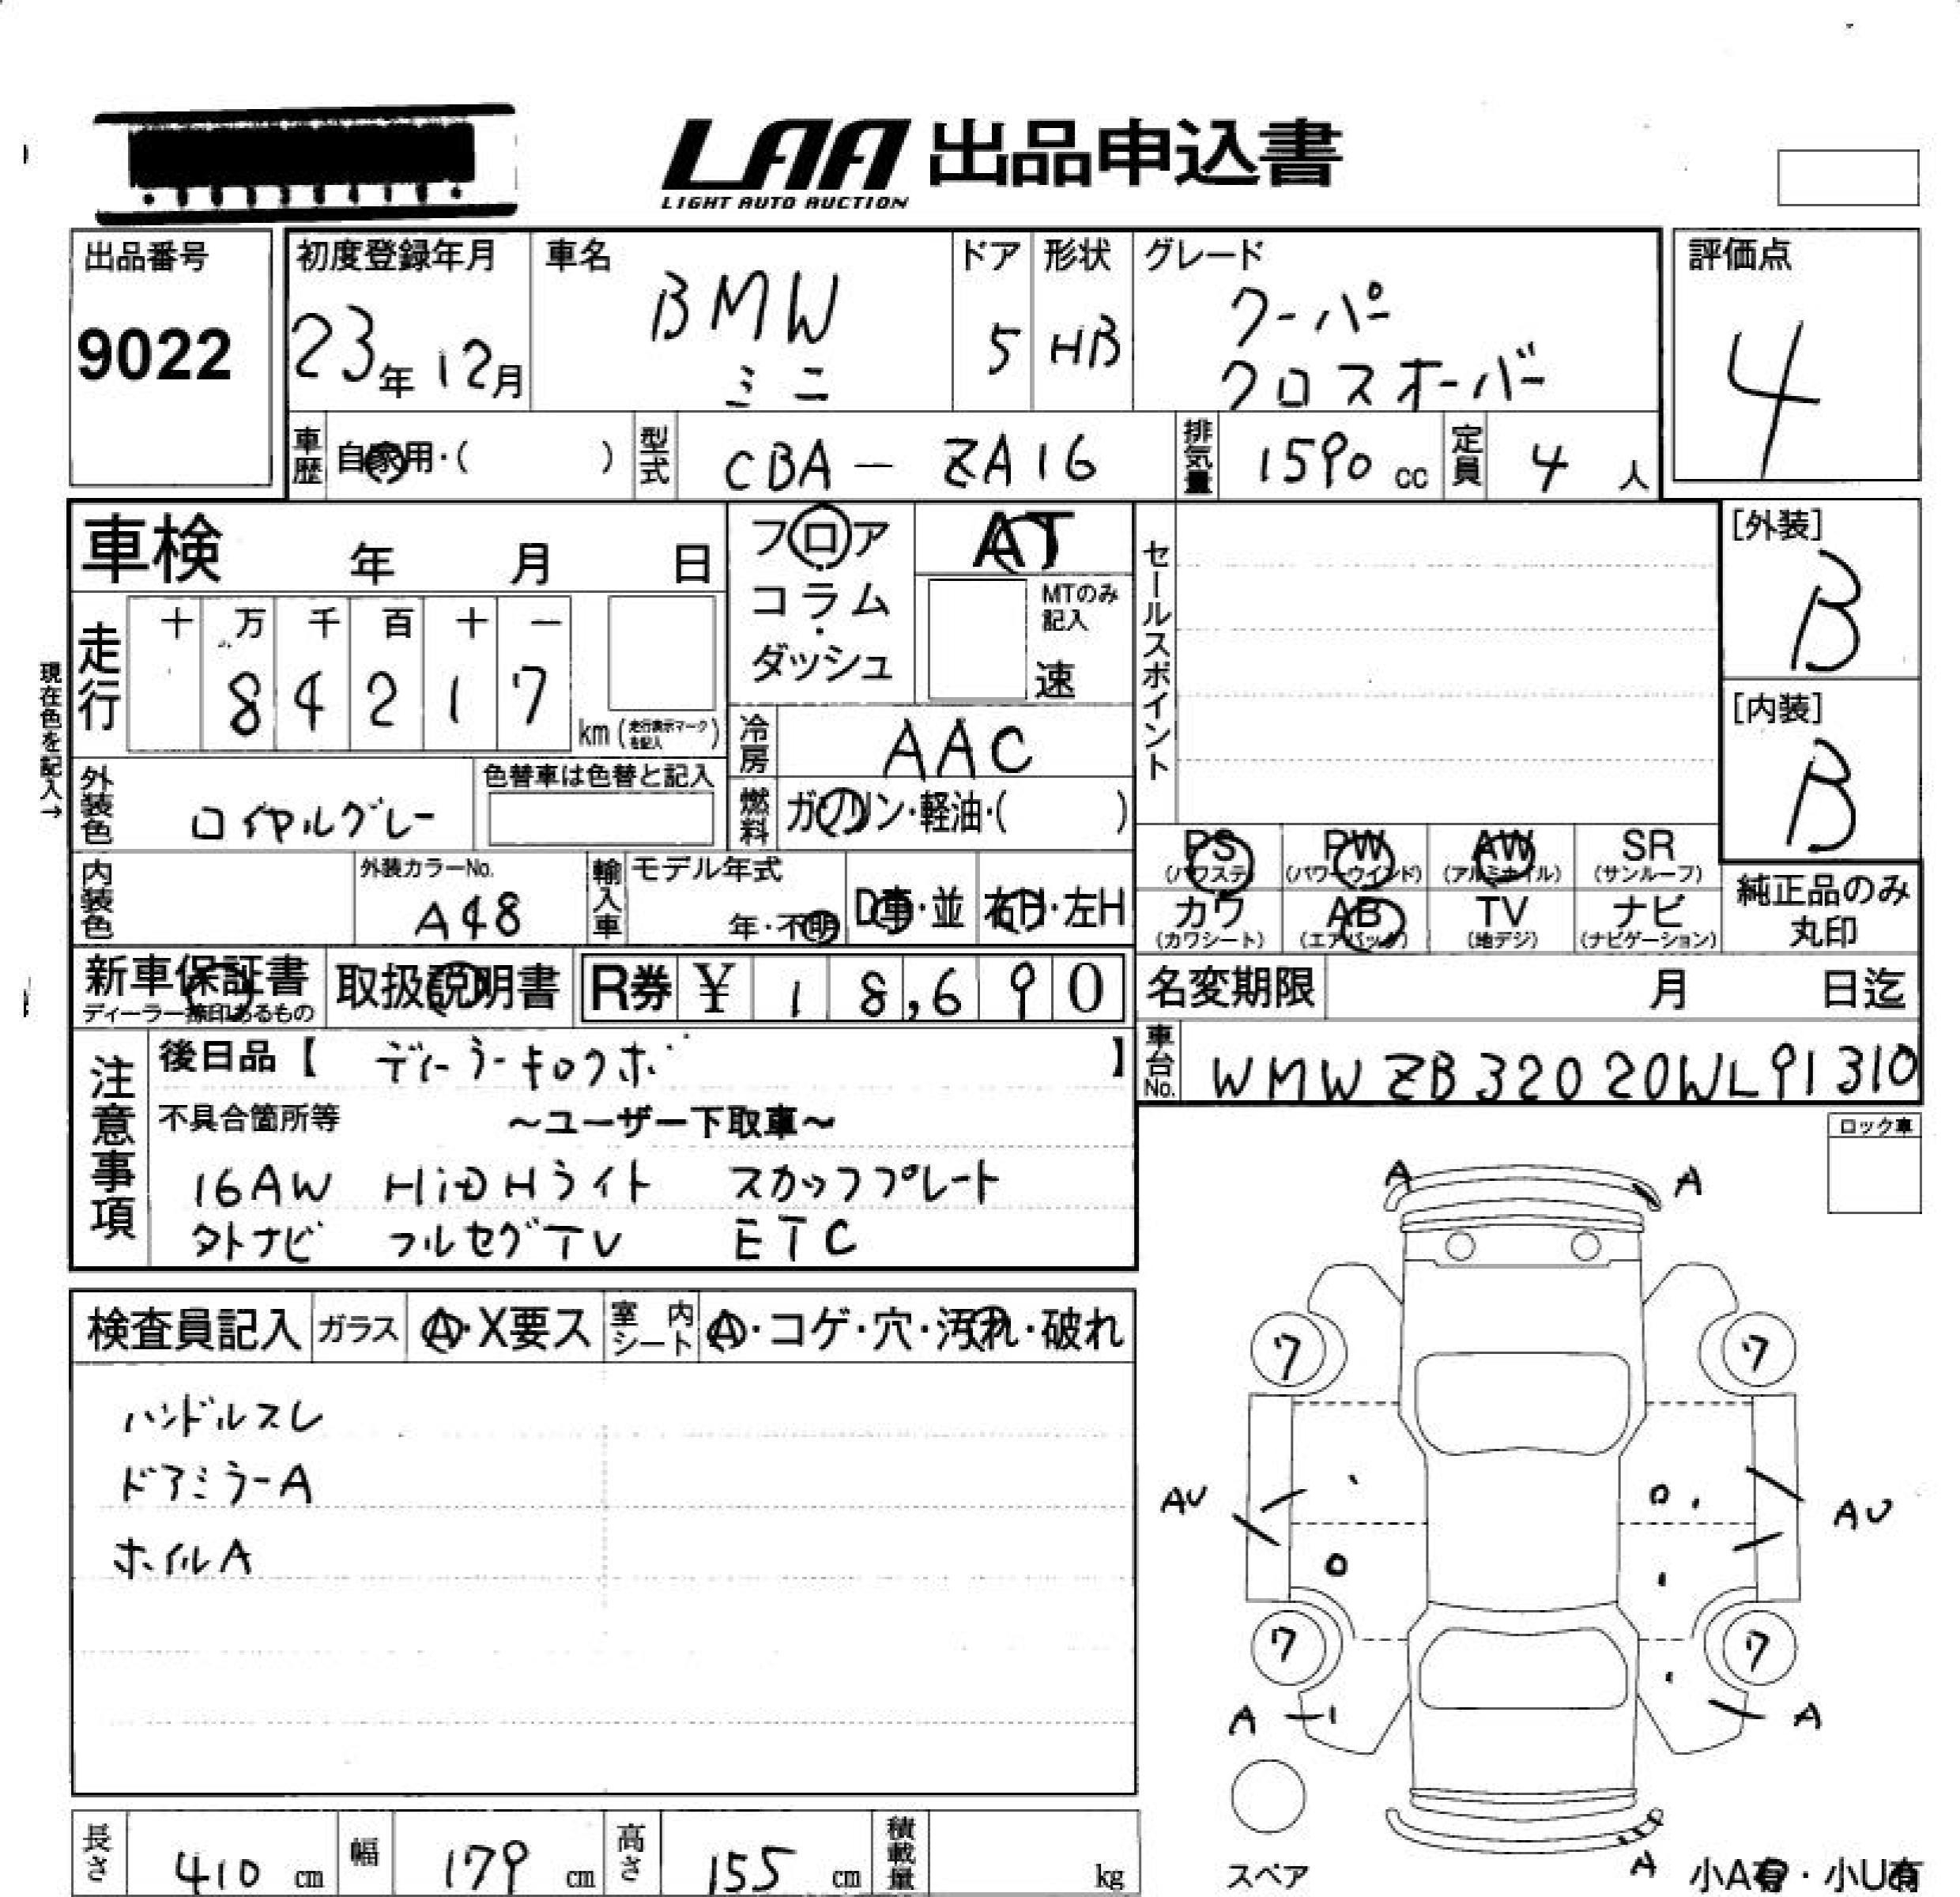 LAA 出品申込書
LIGHT AUTO AUCTION
出品番号
9022
初度登録年月
23年12月
車名
BMW
ミニ
ドア
5
形状
HB
グレード
クーパー
クロスオーバー
評価点
4
車歴 自家用・( )
型式 CBA-ZA16
排気量 1590 cc
定員 4 人
車検 年 月 日
フロア
コラム
・
ダッシュ
AT
MTのみ
記入
速
セールスポイント
[外装]
B
[内装]
B
現在色を記入→
走行
十 万 千 百 十 一
8 4 2 1 7
km (走行表示マークを記入)
冷房 AAC
外装色 ロイヤルグレー
色替車は色替と記入
燃料 ガソリン・軽油・( )
PS
(パワステ)
PW
(パワーウインド)
AW
(アルミホイル)
SR
(サンルーフ)
カワ
(カワシート)
AB
(エアバック)
TV
(地デジ)
ナビ
(ナビゲーション)
純正品のみ
丸印
内装色
外装カラーNo.
A48
輸入車
モデル年式
年・不明
D車・並
右H・左H
新車保証書
ディーラー捺印あるもの
取扱説明書
R券 ¥ 18,690
名変期限 月 日迄
車台No. WMWZB32020WL91310
注意事項
後日品【 ディーラーキロクボ 】
不具合箇所等 ～ユーザー下取車～
16AW HiDHライト スカッフプレート
外ナビ フルセグTV ETC
ロック車
検査員記入
ガラス A・X要ス
室内シート A・コゲ・穴・汚れ・破れ
ハンドルスレ
ドアミラーA
ホイルA
A A
7 7
AU AU
7 7
A A
スペア
A
小A有・小U有
長さ 410 cm
幅 179 cm
高さ 155 cm
積載量 kg